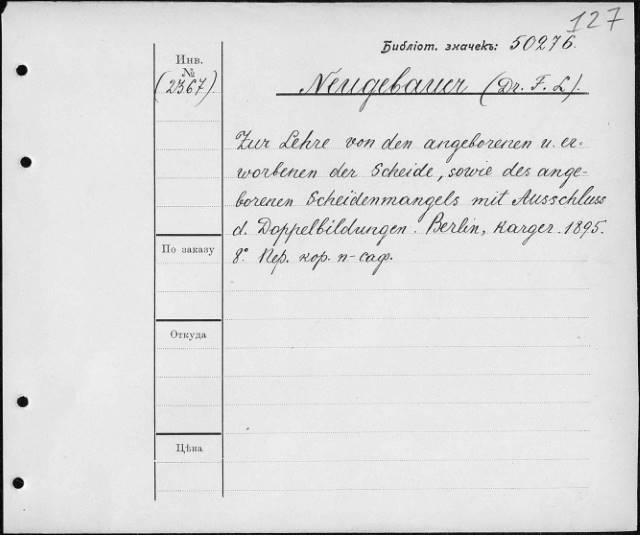 127
Библіот. значекъ: 50276.
Инв.
№
(2367).
Neugebauer (Dr. F. L.).
Zur Lehre von den angeborenen u. er-
worbenen der Scheide, sowie des ange-
borenen Scheidenmangels mit Ausschluss
d. Doppelbildungen. Berlin, Karger. 1895.
8° Пер. кор. п-саф.
По заказу
Откуда
Цѣна